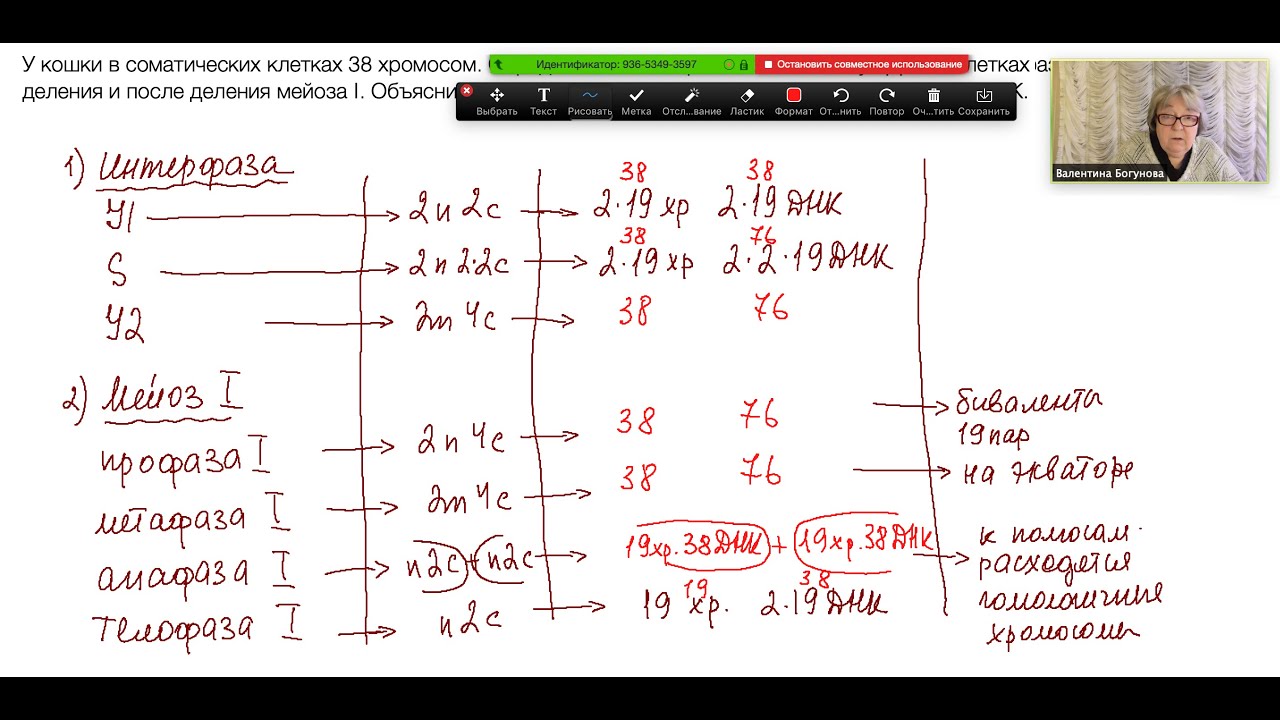 У кошки в соматических клетках 38 хромосом.
Идентификатор: 936-5349-3597
Остановить совместное использование
деления и после деления мейоза I.
Выбрать Текст Рисовать Метка Отсл...вание Ластик Формат От...нить Повтор Оч...тить Сохранить
Валентина Богунова
1) Интерфаза
38 38
У1 2n 2c 2·19 хр 2·19 ДНК
38 76
S 2n 2·2c 2·19 хр 2·2·19 ДНК
У2 2n 4c 38 76
2) Мейоз I
профаза I 2n 4c 38 76 биваленты
19 пар
метафаза I 2n 4c 38 76 на экваторе
анафаза I n2c + n2c 19хр. 38 ДНК + 19хр. 38 ДНК к полюсам
расходятся
гомологичные
хромосомы
19 38
телофаза I n2c 19 хр. 2·19 ДНК